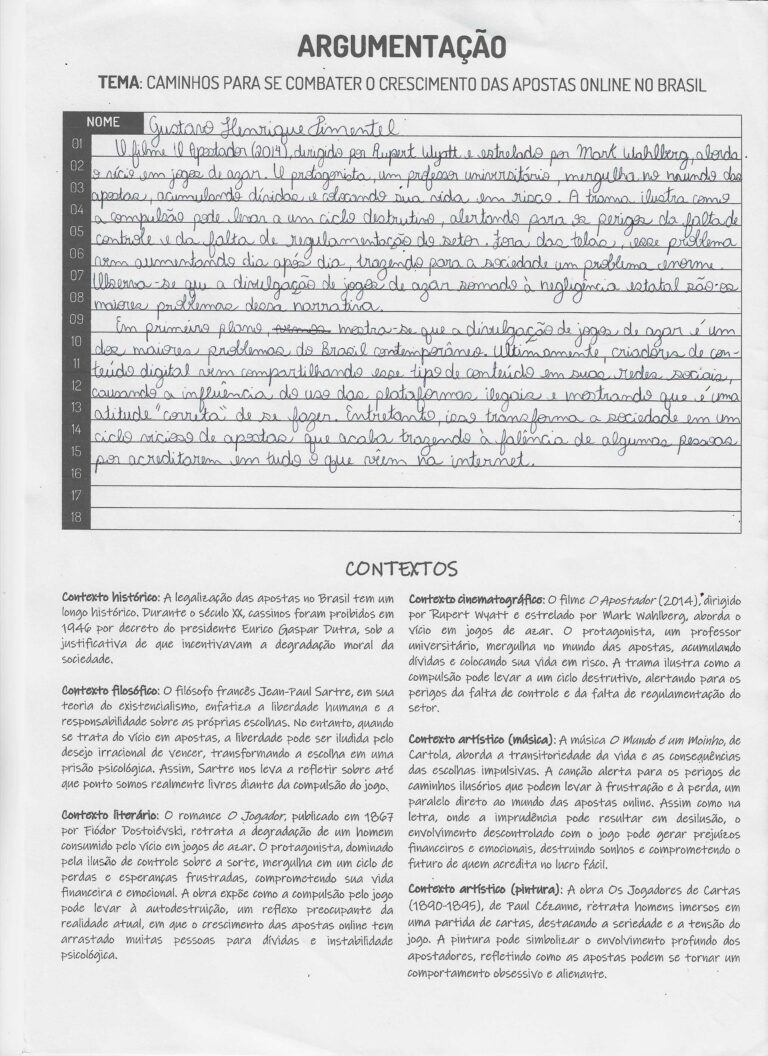 ARGUMENTAÇÃO
TEMA: CAMINHOS PARA SE COMBATER O CRESCIMENTO DAS APOSTAS ONLINE NO BRASIL
NOME Gustavo Henrique Pimentel
01 O filme "O Apostador (2014), dirigido por Rupert Wyatt e estrelado por Mark Wahlberg, aborda
02 o vício em jogos de azar. O protagonista, um professor universitário, mergulha no mundo das
03 apostas, acumulando dívidas e colocando sua vida em risco. A trama ilustra como
04 a compulsão pode levar a um ciclo destrutivo, alertando para os perigos da falta de
05 controle e da falta de regulamentação do setor. Fora das telas, esse problema
06 vem aumentando dia após dia, trazendo para a sociedade um problema enorme.
07 Observa-se que a divulgação de jogos de azar somado à negligência estatal são os
08 maiores problemas dessa narrativa.
09 Em primeiro plano, vemos mostra-se que a divulgação de jogos de azar é um
10 dos maiores problemas do Brasil contemporâneo. Ultimamente, criadores de con-
11 teúdo digital vem compartilhando esse tipo de conteúdo em suas redes sociais,
12 causando a influência do uso das plataformas ilegais e mostrando que é uma
13 atitude "correta" de se fazer. Entretanto, isso transforma a sociedade em um
14 ciclo vicioso de apostas que acaba trazendo à falência de algumas pessoas
15 por acreditarem em tudo o que vêem na internet.
16
17
18
CONTEXTOS
Contexto histórico: A legalização das apostas no Brasil tem um
longo histórico. Durante o século XX, cassinos foram proibidos em
1946 por decreto do presidente Eurico Gaspar Dutra, sob a
justificativa de que incentivavam a degradação moral da
sociedade.
Contexto filosófico: O filósofo francês Jean-Paul Sartre, em sua
teoria do existencialismo, enfatiza a liberdade humana e a
responsabilidade sobre as próprias escolhas. No entanto, quando
se trata do vício em apostas, a liberdade pode ser iludida pelo
desejo irracional de vencer, transformando a escolha em uma
prisão psicológica. Assim, Sartre nos leva a refletir sobre até
que ponto somos realmente livres diante da compulsão do jogo.
Contexto literário: O romance O Jogador, publicado em 1867
por Fiódor Dostoiévski, retrata a degradação de um homem
consumido pelo vício em jogos de azar. O protagonista, dominado
pela ilusão de controle sobre a sorte, mergulha em um ciclo de
perdas e esperanças frustradas, comprometendo sua vida
financeira e emocional. A obra expõe como a compulsão pelo jogo
pode levar à autodestruição, um reflexo preocupante da
realidade atual, em que o crescimento das apostas online tem
arrastado muitas pessoas para dívidas e instabilidade
psicológica.
Contexto cinematográfico: O filme O Apostador (2014), dirigido
por Rupert Wyatt e estrelado por Mark Wahlberg, aborda o
vício em jogos de azar. O protagonista, um professor
universitário, mergulha no mundo das apostas, acumulando
dívidas e colocando sua vida em risco. A trama ilustra como a
compulsão pode levar a um ciclo destrutivo, alertando para os
perigos da falta de controle e da falta de regulamentação do
setor.
Contexto artístico (música): A música O Mundo é um Moinho, de
Cartola, aborda a transitoriedade da vida e as consequências
das escolhas impulsivas. A canção alerta para os perigos de
caminhos ilusórios que podem levar à frustração e à perda, um
paralelo direto ao mundo das apostas online. Assim como na
letra, onde a imprudência pode resultar em desilusão, o
envolvimento descontrolado com o jogo pode gerar prejuízos
financeiros e emocionais, destruindo sonhos e comprometendo o
futuro de quem acredita no lucro fácil.
Contexto artístico (pintura): A obra Os Jogadores de Cartas
(1890-1895), de Paul Cézanne, retrata homens imersos em
uma partida de cartas, destacando a seriedade e a tensão do
jogo. A pintura pode simbolizar o envolvimento profundo dos
apostadores, refletindo como as apostas podem se tornar um
comportamento obsessivo e alienante.